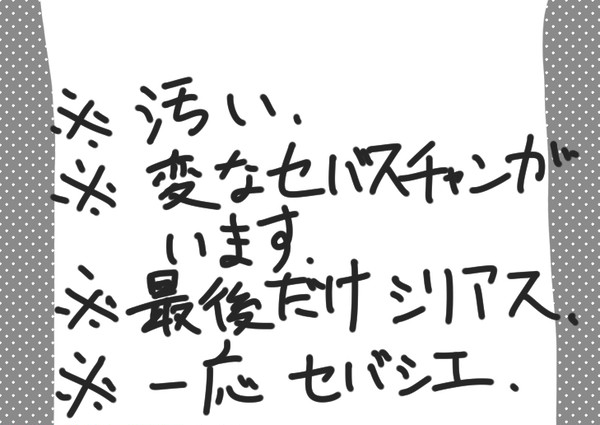 ※ 汚い.
※ 変なセバスチャンが
います.
※ 最後だけ シリアス.
※ 一応 セバシエ.